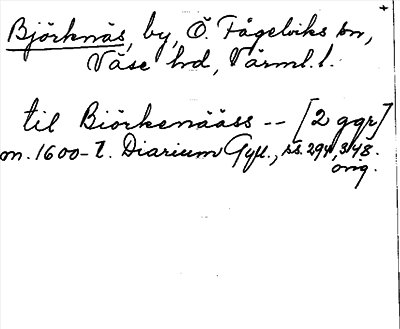 Björknäs, by, Ö. Fågelviks sn,
Väse hd, Värml. l.
til Biörkenääss -- [2 ggr]
m. 1600-t. Diarium Gyll., ss. 294, 348.
orig.